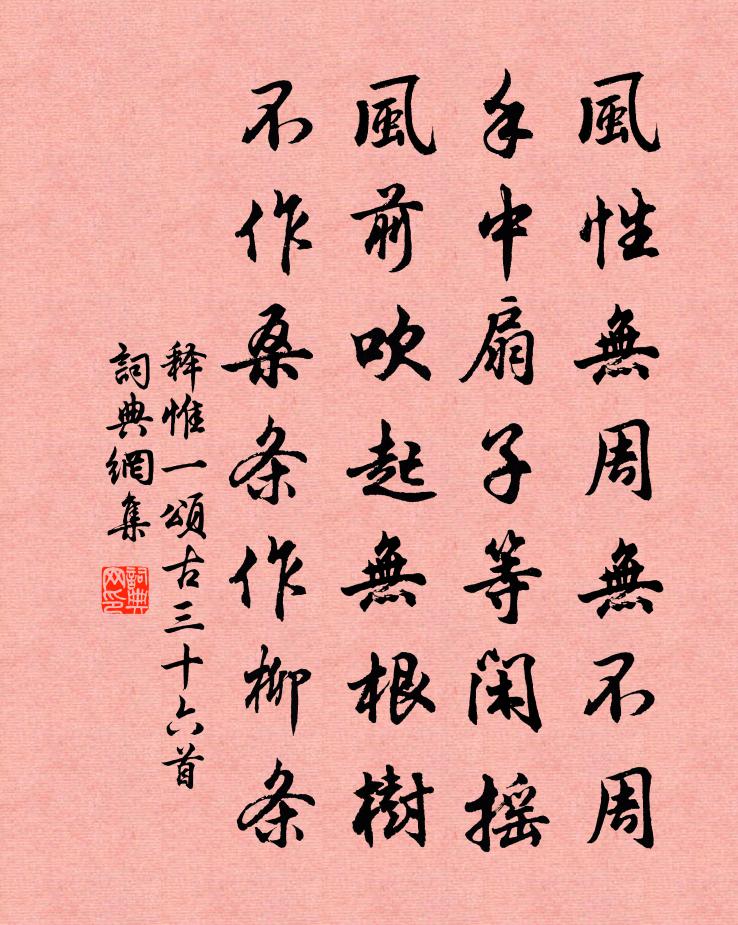 風性無周無不周
手中扇子等閑摇
風前吹起無根樹
不作桑条作柳条
释惟一頌古三十六首
詞典網集
詞典网印